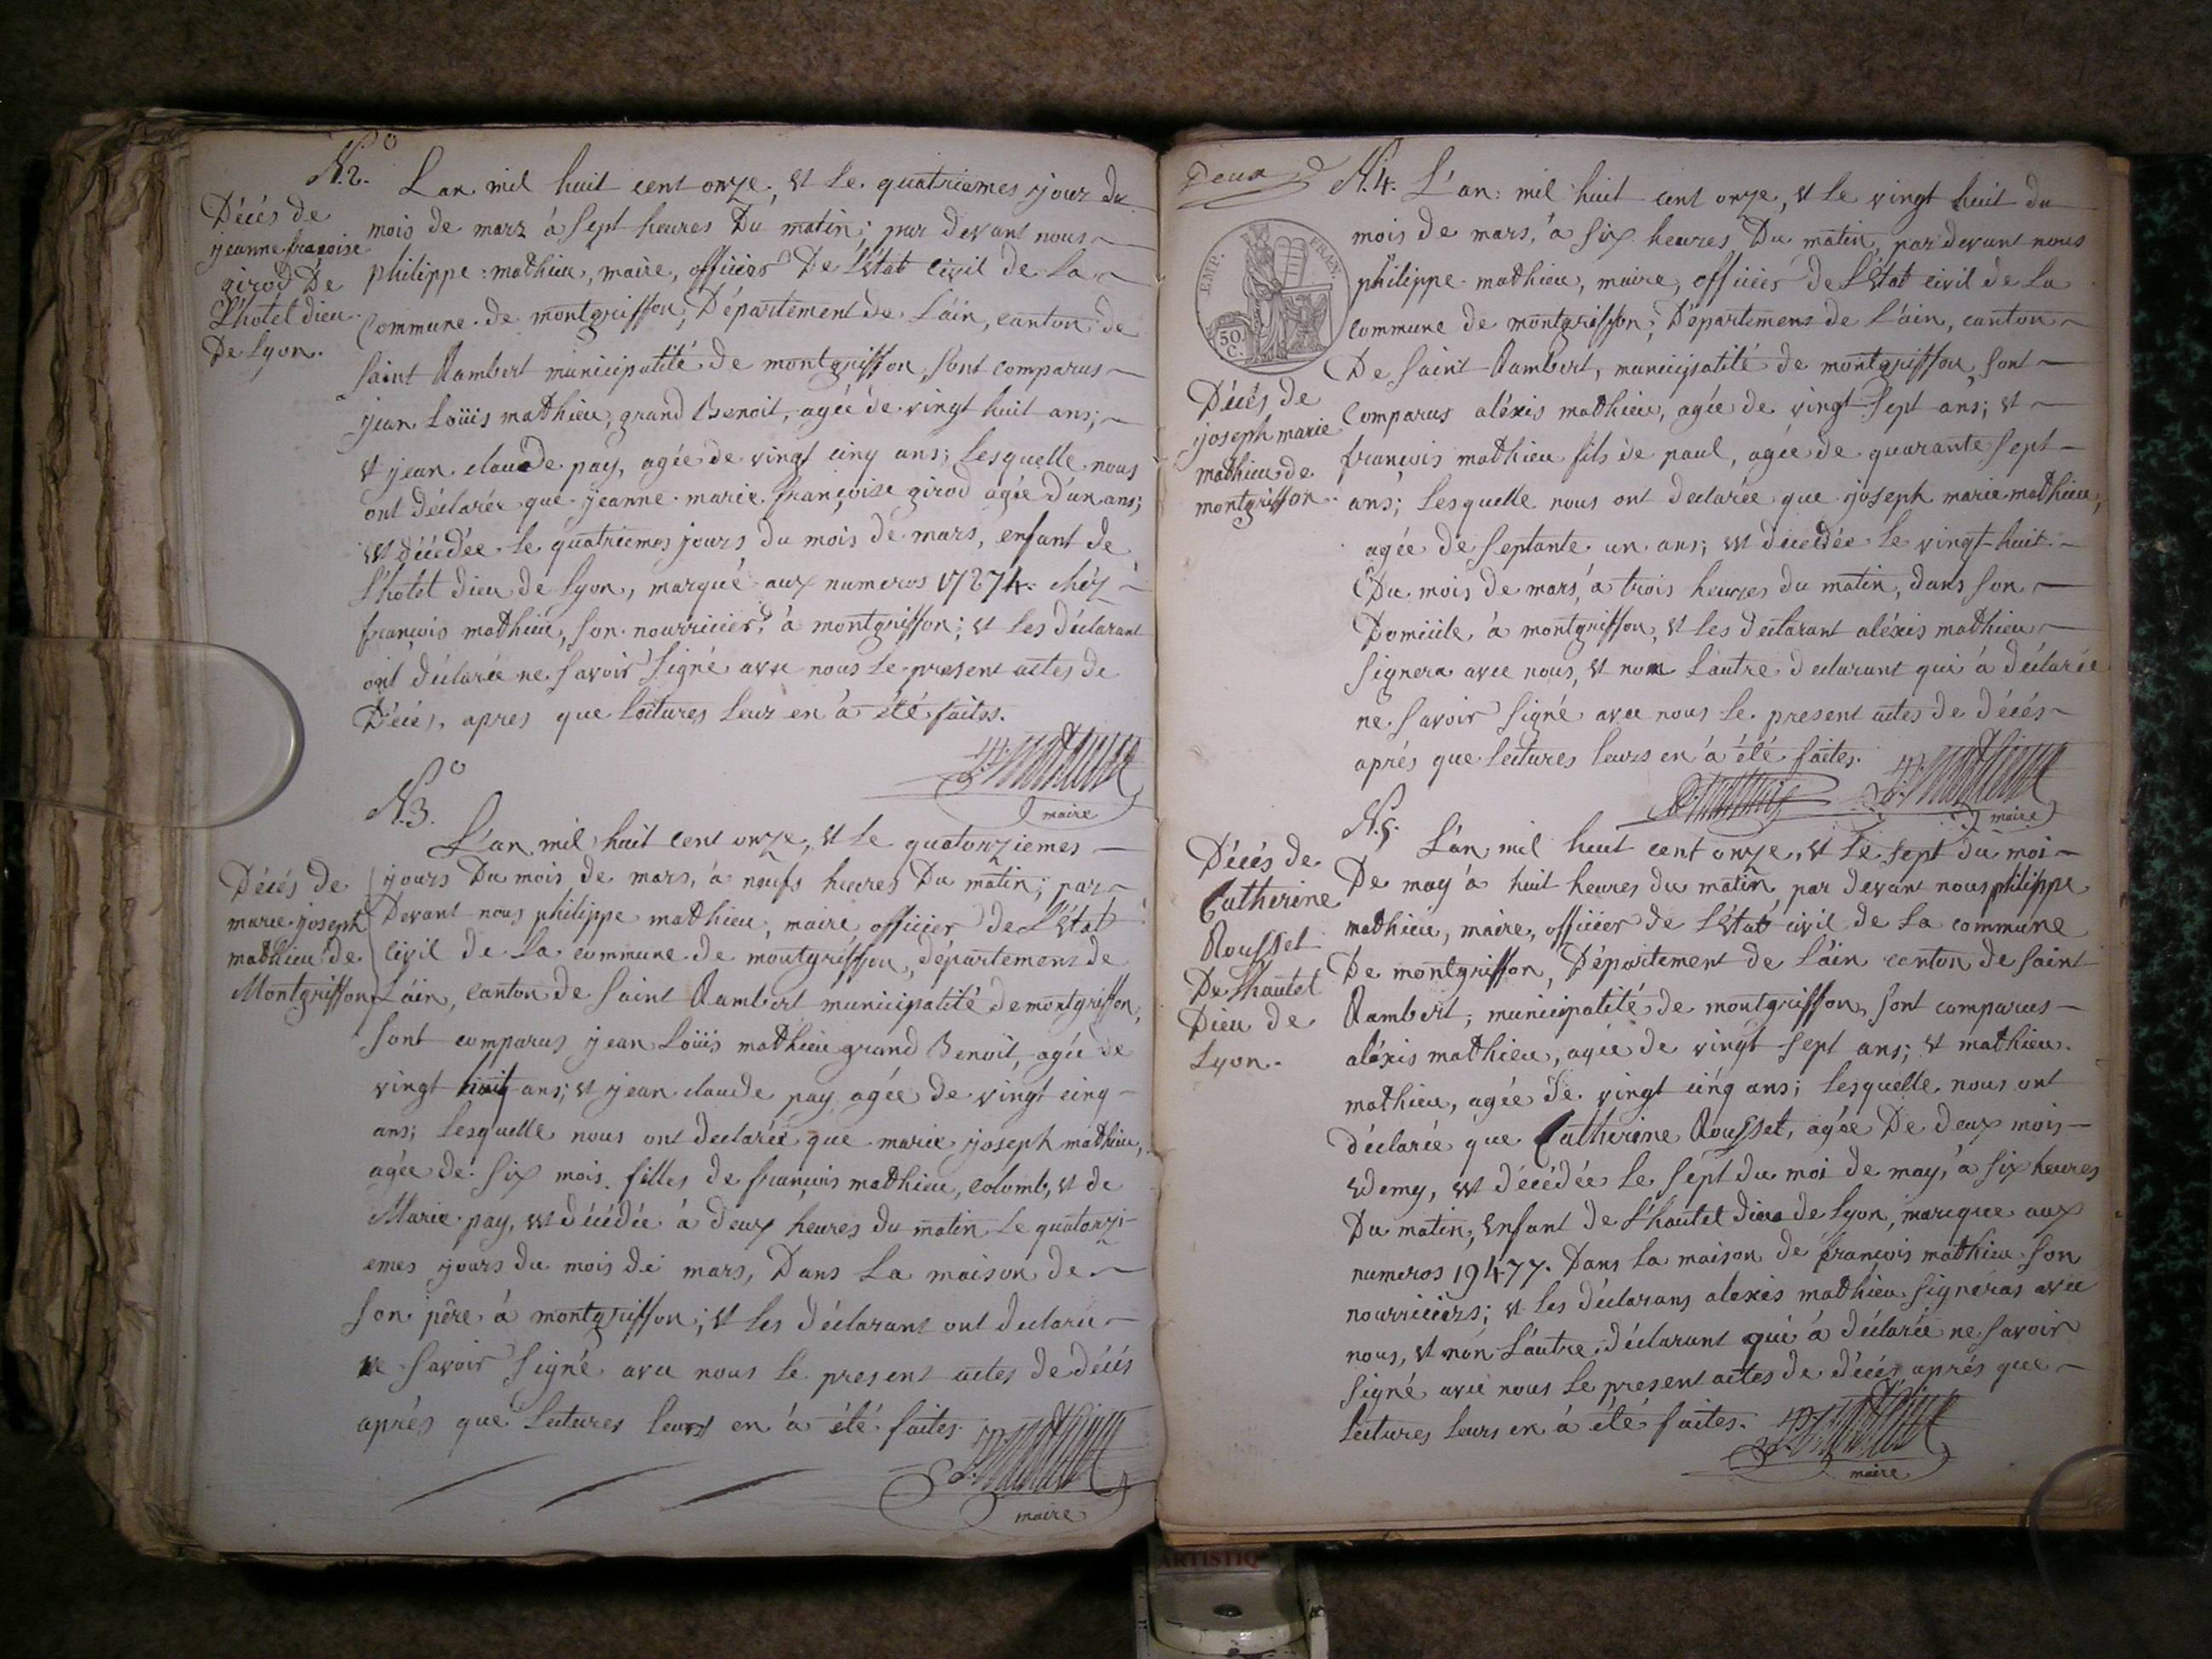 N.2.o
Décés de
jeanne fraçoise
girod De
L'hotel dieu
De Lyon.
L'an mil huit cent onze, et le quatriemes jour du
mois de marz à sept heures Du matin; par devant nous
philippe mathieu, maire, officier De L'Etat Civil de La
Commune de montgriffon, Département de L'ain, canton de
saint Rambert municipalité de montgriffon, sont comparus
jean Loüis mathieu, grand Benoit, agée de vingt huit ans;
et jean claude pay, agée de vingt cinq ans; Lesquelle nous
ont déclarée que jeanne marie françoise girod agée d'un ans;
est décédée le quatriemes jours du mois de mars, enfant de
L'hotel dieu de Lyon, marqué aux numeros 17274. chéz
françois mathieu, son nourricier, à montgriffon; et les déclarant
ont déclarée ne savoir signé avec nous le present actes de
Décés, apres que lectures leur en à été faites.
maire
N.3.o
Décés de
marie joseph
mathieu de
Montgriffon
L'an mil huit cent onze, et le quatorziemes
jours Du mois de mars, à neufs heures Du matin; par
Devant nous philippe mathieu, maire officier de L'Etat
Civil de La commune de montgriffon, département de
L'ain, canton de saint Rambert municipalité de montgriffon,
sont comparus jean Loüis mathieu grand Benoit, agée de
vingt huit ans; et jean claude pay agée de vingt cinq
ans; Lesquelle nous ont declarée que marie joseph mathieu,
agée de six mois filles de françois mathieu, colomb, et de
Marie pay, est décédée à deux heures du matin le quatorzi-
emes jours du mois de mars, Dans La maison de
son père à montgriffon; et les déclarant ont declaré
ne savoir signé avec nous le present actes de décés
aprés que lectures leurs en à été faites.
maire
Deux
EMP. FRAN.
50
C.
Décés de
joseph marie
mathieu de
montgriffon
N.4. L'an mil huit cent onze, et le vingt huit du
mois de mars, à six heures Du matin, par devant nous
philippe mathieu, maire, officier de L'Etat civil de La
commune de montgriffon, Département de L'ain, canton
De Saint Rambert, municipalité de montgriffon, sont
Comparus aléxis mathieu, agée de vingt sept ans; et
françois mathieu fils de paul, agée de quarante sept
ans; Lesquelle nous ont declarée que joseph marie mathieu,
agée de septante un ans; est décédée le vingt-huit
Du mois de mars, à trois heures du matin, dans son
Domicile, à montgriffon, et les declarant aléxis mathieu
signera avec nous, et non L'autre declarant qui à déclarée
ne savoir signé avec nous le present actes de décés
aprés que lectures leurs en à été faites.
maire
N.5.
Décés de
Catherine
Rousset
De L'hautel
Dieu de
Lyon.
L'an mil huit cent onze, et le sept du moi
De may à huit heures du matin par devant nous philippe
mathieu, maire, officier de L'Etat civil de La commune
De montgriffon, Département de L'ain canton de saint
Rambert, municipalité de montgriffon, sont comparus
aléxis mathieu, agée de vingt sept ans; et mathieu
mathieu, agée de vingt cinq ans; Lesquelle nous ont
déclarée que Catherine Rousset, agée De deux mois
edemy, est décédée le sept du moi de may, à six heures
Du matin, Enfant de L'hautel dieu de Lyon, marque aux
numeros 19477. Dans La maison de françois mathieu son
nourriciers; et les déclarans alexis mathieu signeras avec
nous, et non L'autre déclarant qui à déclarée ne savoir
signé avec nous le present actes de décés aprés que
lectures leurs en à été faites.
maire
ARTISTIQ